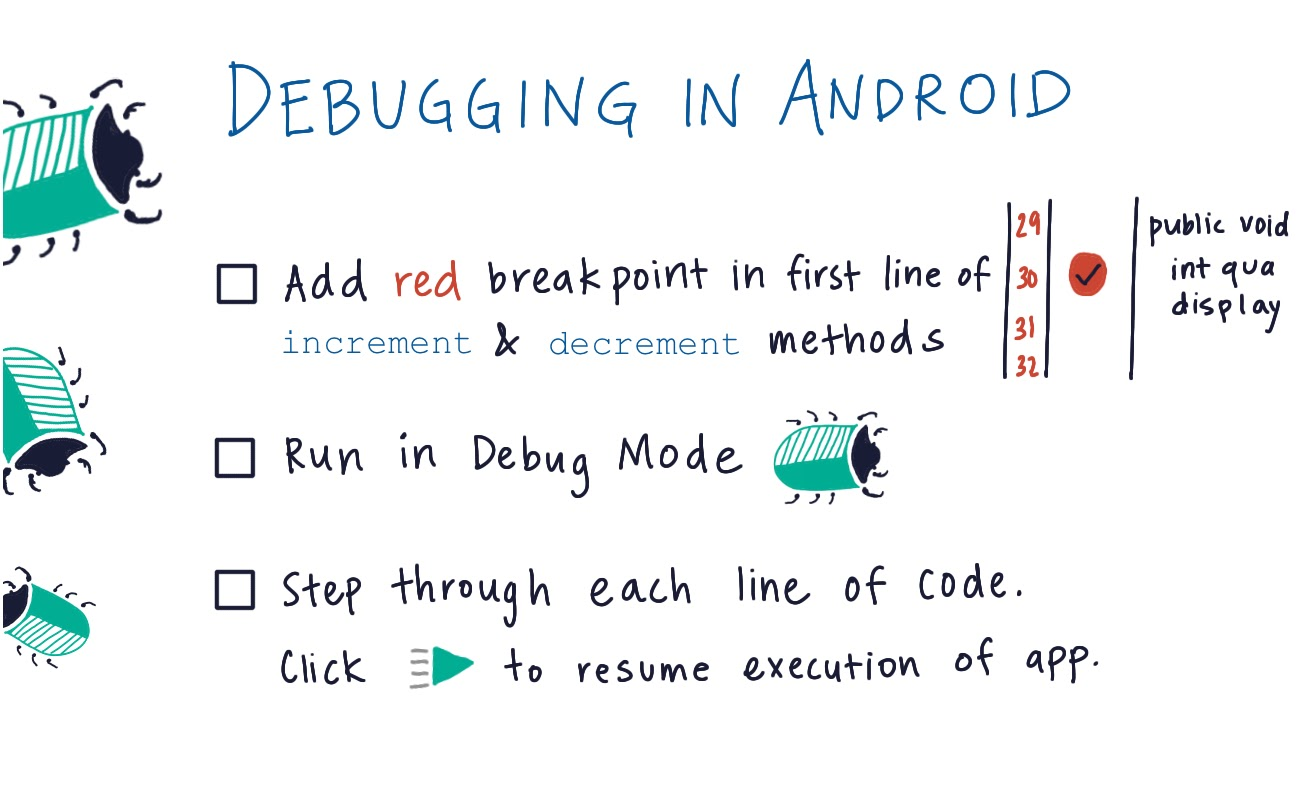 DEBUGGING IN ANDROID
Add red breakpoint in first line of
increment & decrement methods
29
30
31
32
public void
int qua
display
Run in Debug Mode
Step through each line of code.
Click to resume execution of app.